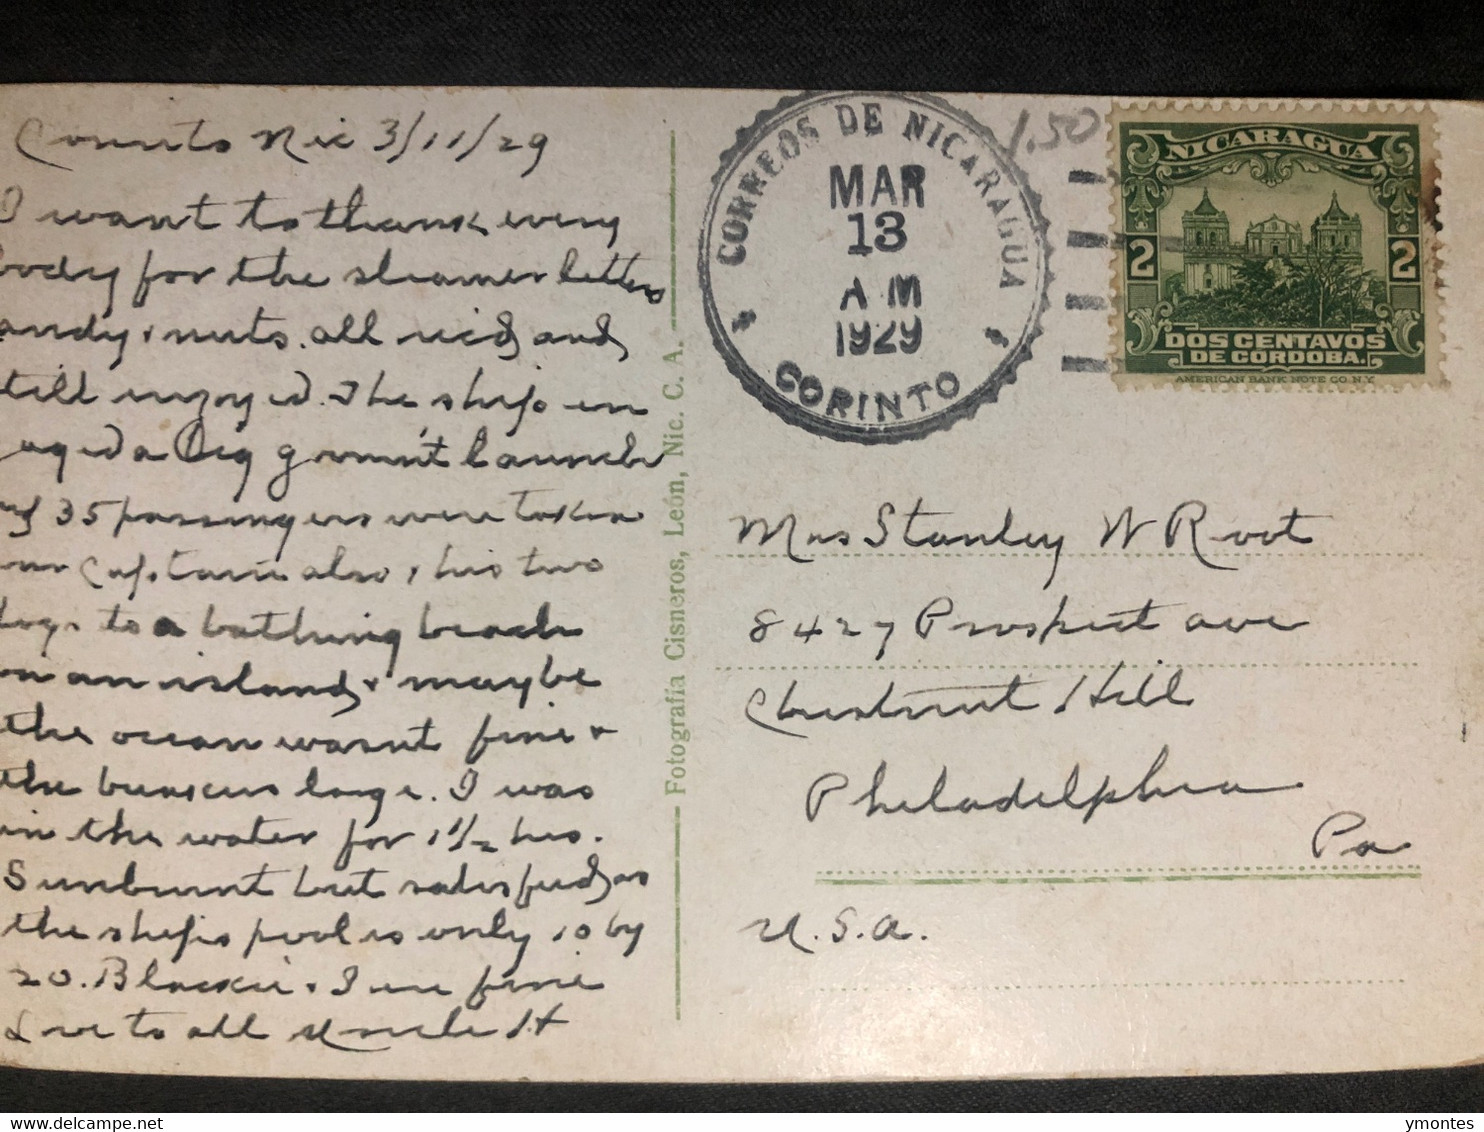 Corinto Nic 3/11/29
I want to thank every
body for the steamer letters
andy & nuts. all recd and
till enjoyed. The ship en
aged a big govmnt launch
35 passengers were taken
our Captain also, his two
dogs to a bathing beach
on an island & maybe
the ocean wasnt fine &
the breakers large. I was
in the water for 1 1/2 hrs.
Sunburnt but satisfied as
the ships pool is only 10 by
20. Blackie & I are fine
Love to all Uncle H
Fotografía Cisneros, León, Nic. C. A.
CORREOS DE NICARAGUA
MAR
13
AM
1929
CORINTO
1.50
NICARAGUA
2 2
DOS CENTAVOS
DE CORDOBA.
AMERICAN BANK NOTE CO. N.Y.
Mrs Stanley W Root
8427 Prospect ave
Chestnut Hill
Philadelphia
Pa
U.S.A.
ymontes